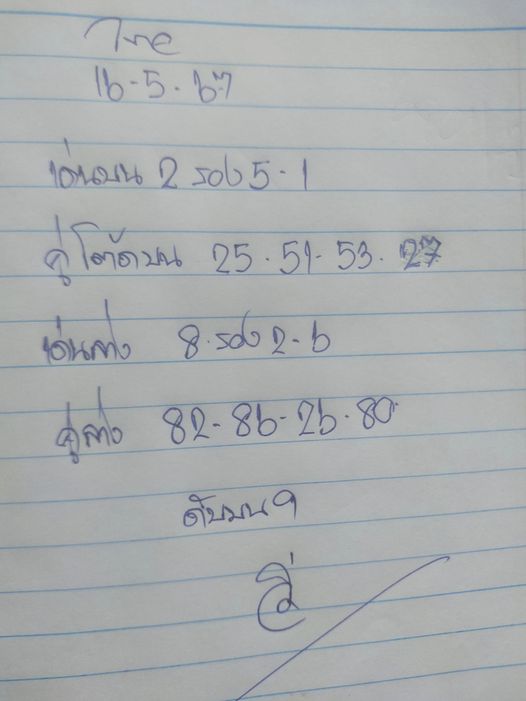 ไทย
16-5-67
เด่นบน 2 รอง 5-1
คู่โต๊ดบน 25.51-53.27
เด่นล่าง 8.รอง 2-6
คู่ล่าง 82-86-26.80
ดับบน 9